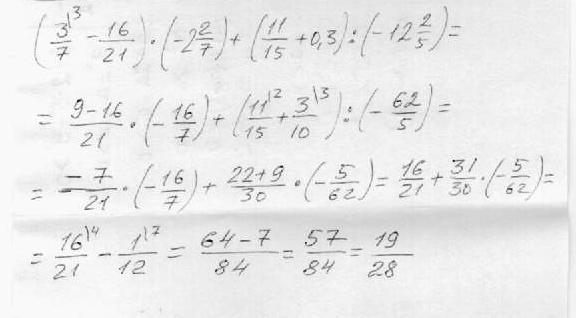 (3\3/7 - 16/21) · (-2 2/7) + (11/15 + 0,3) : (-12 2/5) =
= 9-16/21 · (-16/7) + (11\2/15 + 3\3/10) : (-62/5) =
= -7/21 · (-16/7) + 22+9/30 · (-5/62) = 16/21 + 31/30 · (-5/62) =
= 16\4/21 - 1\7/12 = 64-7/84 = 57/84 = 19/28